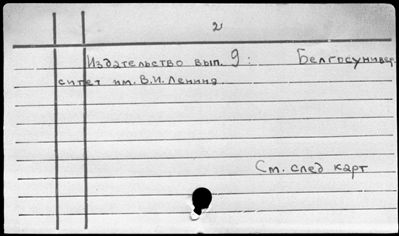 2
Издательство вып. 9: Белгосунивер
ситет им. В.И. Ленина
См. след карт